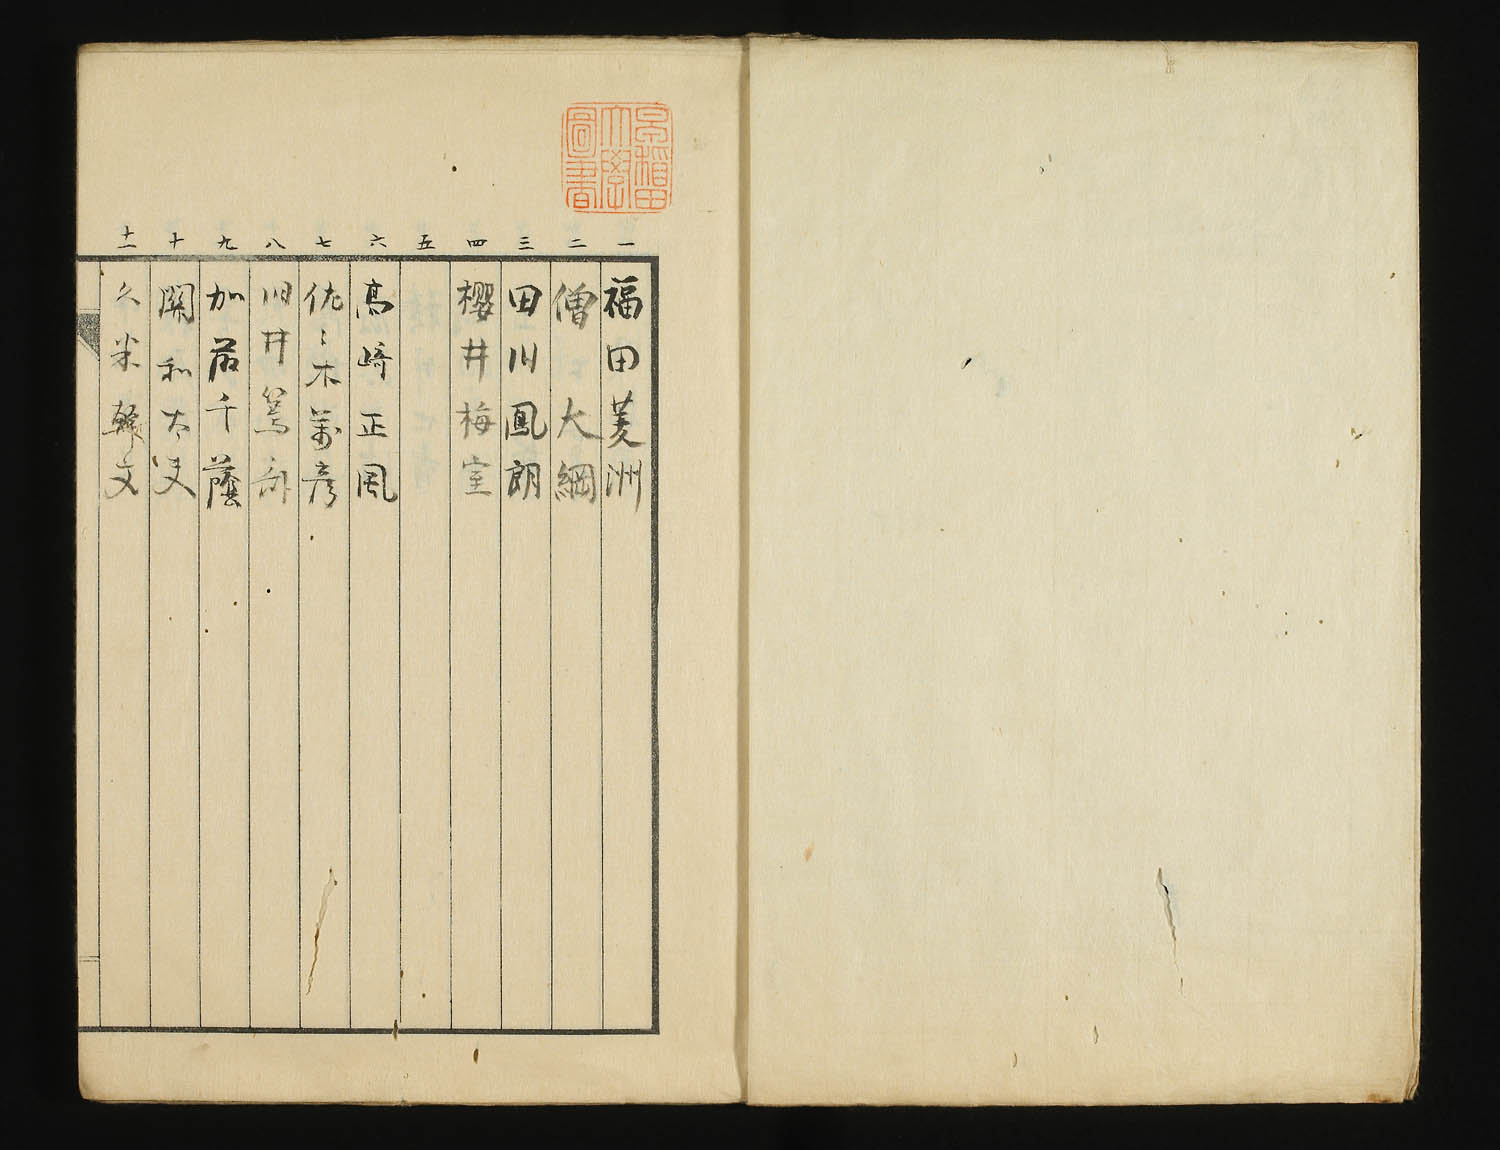 早稲田
大學
圖書
一 福田菱洲
二 僧 大綱
三 田川鳳朗
四 櫻井梅室
五
六 高崎正風
七 佐々木萬彦
八 川井篤
九 加茂千蔭
十 関和太夫
十一 久米幹文